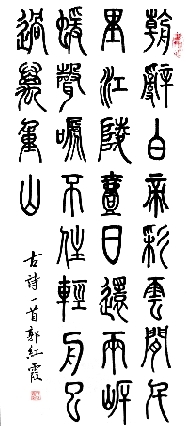 朝辭白帝彩雲間千
里江陵壹日還兩岸
蝯聲嗁不住輕舟已
過萬重山
古詩一首郭紅霞